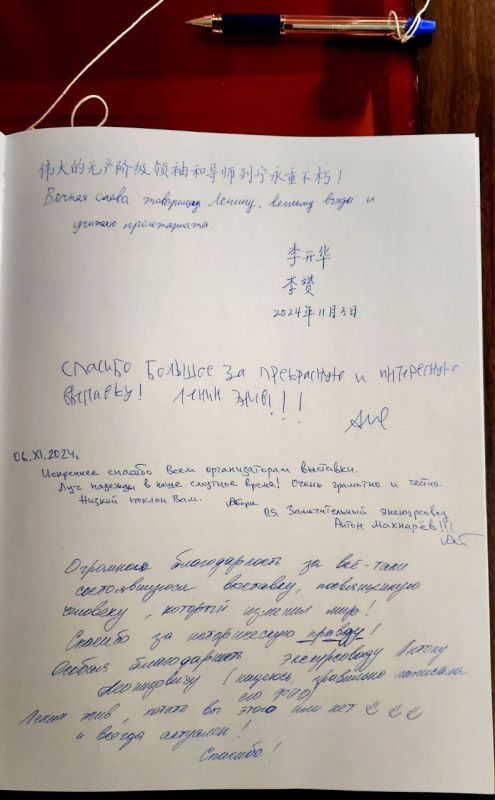 伟大的无产阶级领袖和导师列宁永垂不朽!
Вечная слава товарищу Ленину, великому вождю и
учителю пролетариата.
李开华
李赟
2024年11月3日
Спасибо большое за прекрасную и интересную
выставку! Ленин жив!!!
06.XI.2024г.
Искреннее спасибо всем организаторам выставки.
Луч надежды в наше смутное время! Очень грамотно и честно.
Низкий поклон Вам.
P.S. Замечательный экскурсовод
Антон Махнарёв!!!
Огромная благодарность за всё-таки
состоявшуюся выставку, посвященную
человеку, который изменил мир!
Спасибо за историческую правду!
Особая благодарность экскурсоводу Антону
Леонидовичу (надеюсь, правильно написала
его ФИО)
Ленин жив, хотите вы этого или нет
и всегда актуален!
Спасибо!